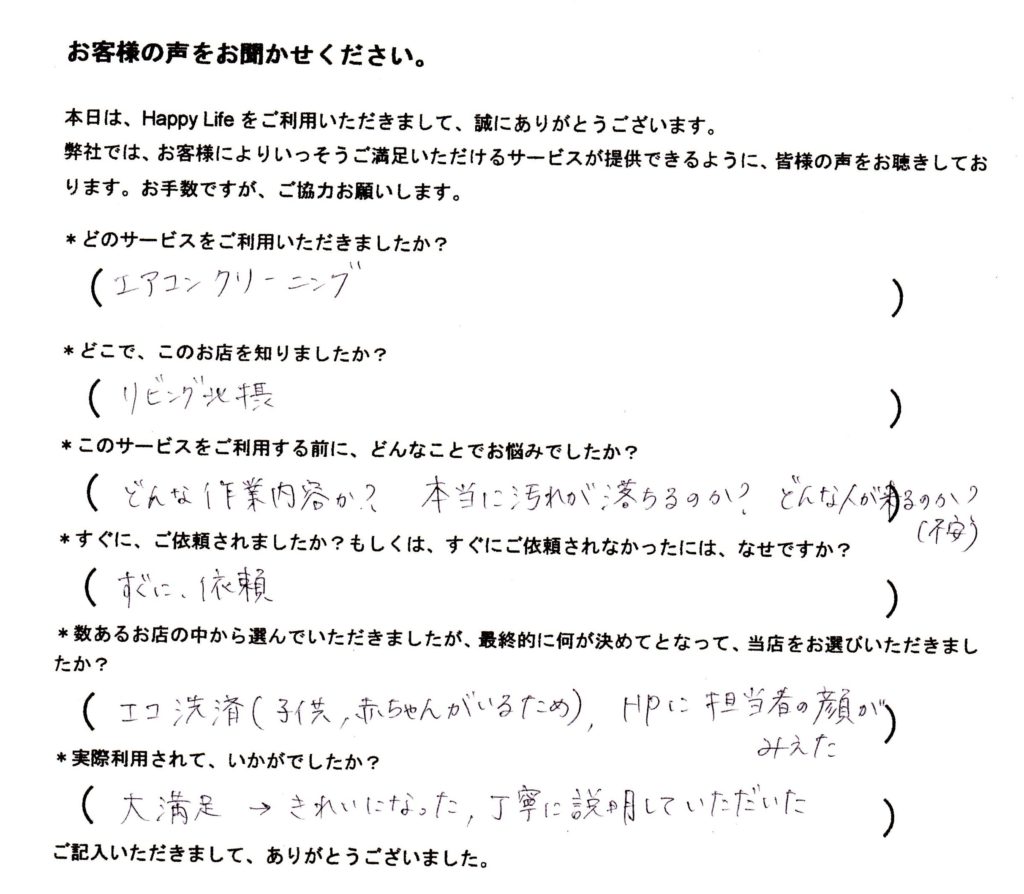 お客様の声をお聞かせください。
本日は、Happy Life をご利用いただきまして、誠にありがとうございます。
弊社では、お客様によりいっそうご満足いただけるサービスが提供できるように、皆様の声をお聴きしてお
ります。お手数ですが、ご協力お願いします。
＊どのサービスをご利用いただきましたか？
( エアコンクリーニング )
＊どこで、このお店を知りましたか？
( リビング北摂 )
＊このサービスをご利用する前に、どんなことでお悩みでしたか？
( どんな作業内容か？ 本当に汚れが落ちるのか？ どんな人が来るのか？ )
(不安)
＊すぐに、ご依頼されましたか？もしくは、すぐにご依頼されなかったには、なせですか？
( すぐに、依頼 )
＊数あるお店の中から選んでいただきましたが、最終的に何が決めてとなって、当店をお選びいただきまし
たか？
( エコ洗済(子供,赤ちゃんがいるため), HPに担当者の顔が )
みえた
＊実際利用されて、いかがでしたか？
( 大満足 → きれいになった, 丁寧に説明していただいた )
ご記入いただきまして、ありがとうございました。